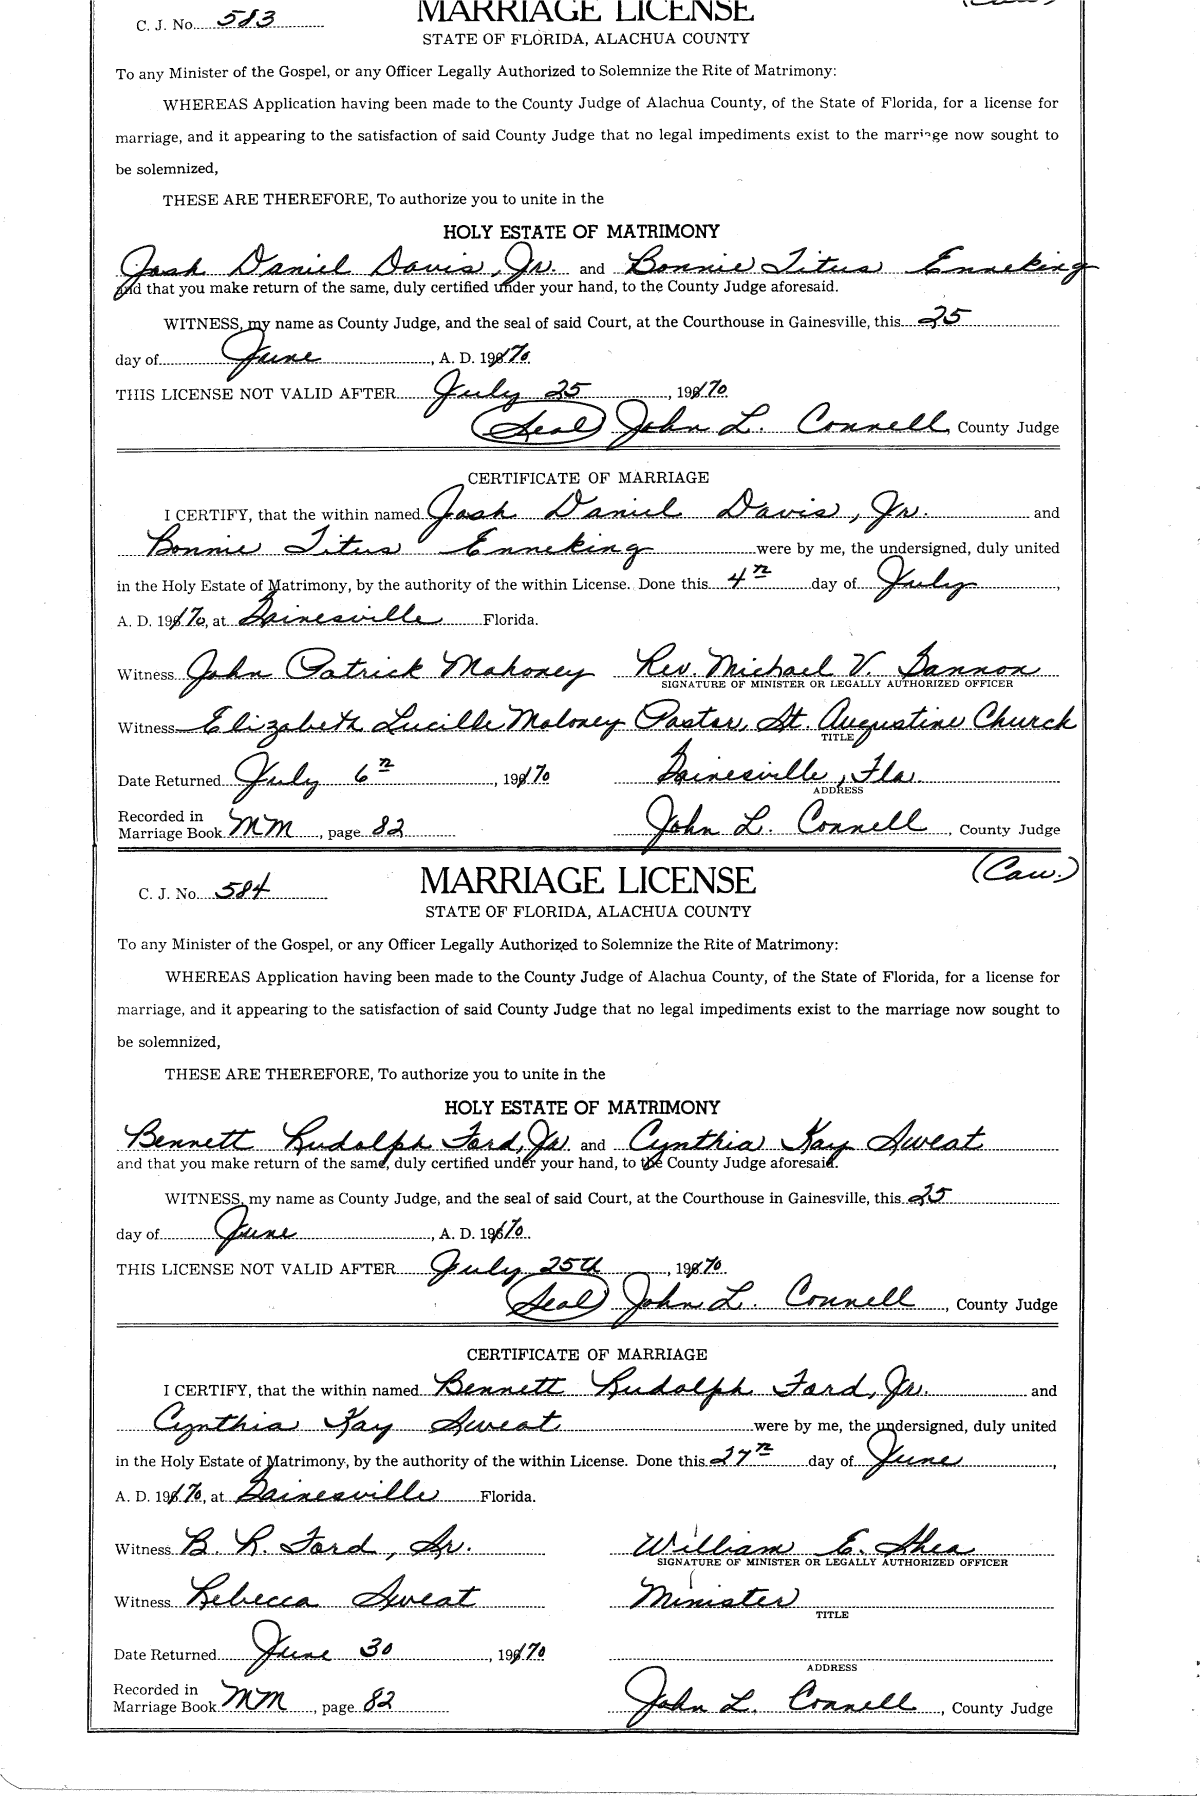 (Cau.)
C. J. No. 583 MARRIAGE LICENSE
STATE OF FLORIDA, ALACHUA COUNTY
To any Minister of the Gospel, or any Officer Legally Authorized to Solemnize the Rite of Matrimony:
WHEREAS Application having been made to the County Judge of Alachua County, of the State of Florida, for a license for
marriage, and it appearing to the satisfaction of said County Judge that no legal impediments exist to the marriage now sought to
be solemnized,
THESE ARE THEREFORE, To authorize you to unite in the
HOLY ESTATE OF MATRIMONY
Josh Daniel Davis, Jr. and Bonnie Titus Enneking
and that you make return of the same, duly certified under your hand, to the County Judge aforesaid.
WITNESS, my name as County Judge, and the seal of said Court, at the Courthouse in Gainesville, this 25
day of June, A. D. 1970
THIS LICENSE NOT VALID AFTER July 25, 1970
(Seal) John L. Connell, County Judge
CERTIFICATE OF MARRIAGE
I CERTIFY, that the within named Josh Daniel Davis, Jr. and
Bonnie Titus Enneking were by me, the undersigned, duly united
in the Holy Estate of Matrimony, by the authority of the within License. Done this 4th day of July,
A. D. 1970, at Gainesville Florida.
Witness John Patrick Mahoney Rev. Michael V. Gannon
SIGNATURE OF MINISTER OR LEGALLY AUTHORIZED OFFICER
Witness Elizabeth Lucille Maloney Pastor, St. Augustine Church
TITLE
Date Returned July 6th, 1970 Gainesville, Fla.
ADDRESS
Recorded in
Marriage Book MM, page 82 John L. Connell, County Judge
(Cau.)
C. J. No. 584 MARRIAGE LICENSE
STATE OF FLORIDA, ALACHUA COUNTY
To any Minister of the Gospel, or any Officer Legally Authorized to Solemnize the Rite of Matrimony:
WHEREAS Application having been made to the County Judge of Alachua County, of the State of Florida, for a license for
marriage, and it appearing to the satisfaction of said County Judge that no legal impediments exist to the marriage now sought to
be solemnized,
THESE ARE THEREFORE, To authorize you to unite in the
HOLY ESTATE OF MATRIMONY
Bennett Rudolph Ford, Jr. and Cynthia Kay Sweat
and that you make return of the same, duly certified under your hand, to the County Judge aforesaid.
WITNESS, my name as County Judge, and the seal of said Court, at the Courthouse in Gainesville, this 25
day of June, A. D. 1970
THIS LICENSE NOT VALID AFTER July 25th, 1970
(Seal) John L. Connell, County Judge
CERTIFICATE OF MARRIAGE
I CERTIFY, that the within named Bennett Rudolph Ford, Jr. and
Cynthia Kay Sweat were by me, the undersigned, duly united
in the Holy Estate of Matrimony, by the authority of the within License. Done this 27th day of June,
A. D. 1970, at Gainesville Florida.
Witness B. R. Ford, Sr. William E. Shea
SIGNATURE OF MINISTER OR LEGALLY AUTHORIZED OFFICER
Witness Rebecca Sweat Minister
TITLE
Date Returned June 30, 1970
ADDRESS
Recorded in
Marriage Book MM, page 82 John L. Connell, County Judge